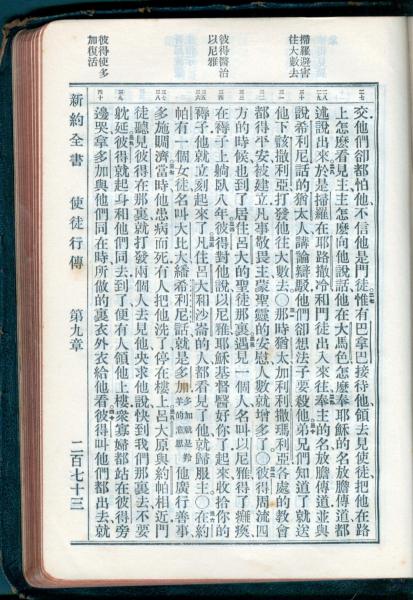 掃羅避害
往大數去
彼得醫治
以尼雅
彼得使多
加復活
交他們卻都怕他不信他是門徒惟有巴拿巴接待他領去見使徒把他在路
上怎麼看見主主怎麼向他說話他在大馬色怎麼奉耶穌的名放膽傳道都
述說出來於是掃羅在耶路撒冷和門徒出入來往奉主的名放膽傳道並與
說希利尼話的猶太人講論辯駁他們卻想法子要殺他弟兄們知道了就送
他下該撒利亞打發他往大數去〇那時猶太加利利撒瑪利亞各處的教會
都得平安被建立凡事敬畏主蒙聖靈的安慰人數就增多了〇彼得周流四
方的時候也到了居住呂大的聖徒那裏遇見一個人名叫以尼雅得了癱瘓
在褥子上躺臥八年彼得對他說以尼雅耶穌基督醫好你了起來收拾你的
褥子他就立刻起來了凡住呂大和沙崙的人都看見了他就歸服主〇在約
帕有一個女徒名叫大比大繙希利尼話就是多加多加就是羚羊的意思他廣行善事
多施賙濟當時他患病而死有人把他洗了停在樓上呂大原與約帕相近門
徒聽見彼得在那裏就打發兩個人去見他央求他說快到我們那裏去不要
躭延彼得就起身和他們同去到了便有人領他上樓眾寡婦都站在彼得旁
邊哭拿多加與他們同在時所做的裏衣外衣給他看彼得叫他們都出去就
新約全書 使徒行傳 第九章 二百七十三